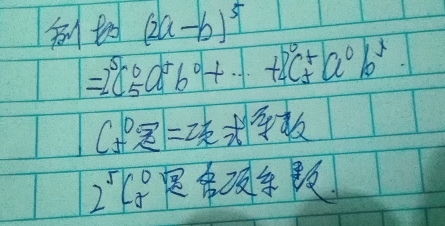 例如 (2a-b)⁵
=2⁵C₅⁰a⁵b⁰+…+2⁰C₅⁵a⁰b⁵
C₅⁰是二项式系数
2⁵C₅⁰是各项系数.